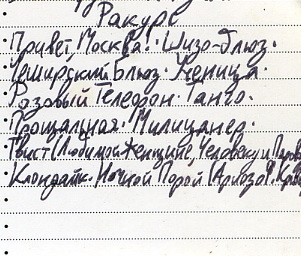 Ракурс
Привет, Москва! · Шизо-Блюз ·
Чеширский Блюз · Ученица ·
Розовый Телефон · Танго ·
Прощальная · Милиционер ·
Твист (Любимой Женщине, Человеку и
Клондайк · Ночной Порой (Ариозо) ·